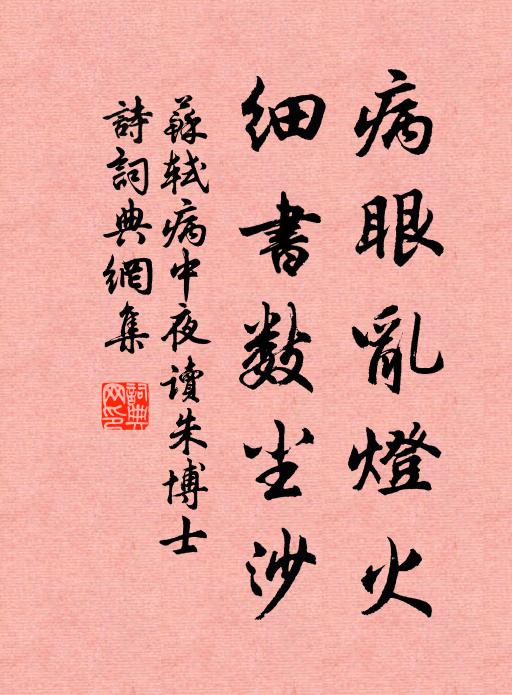 病眼亂燈火
細書數尘沙
蘇軾病中夜讀朱博士
詩詞典網集
詞典網印